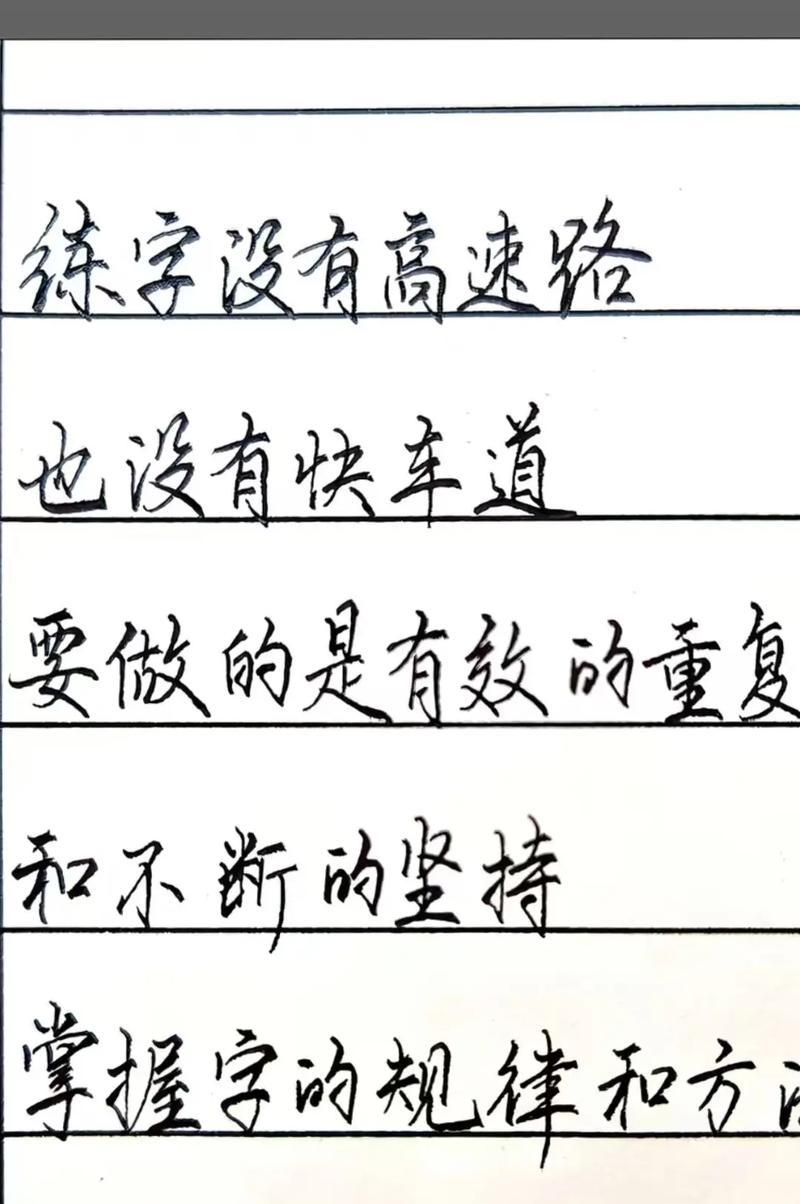 练字没有高速路
也没有快车道
要做的是有效的重复
和不断的坚持
掌握字的规律和方